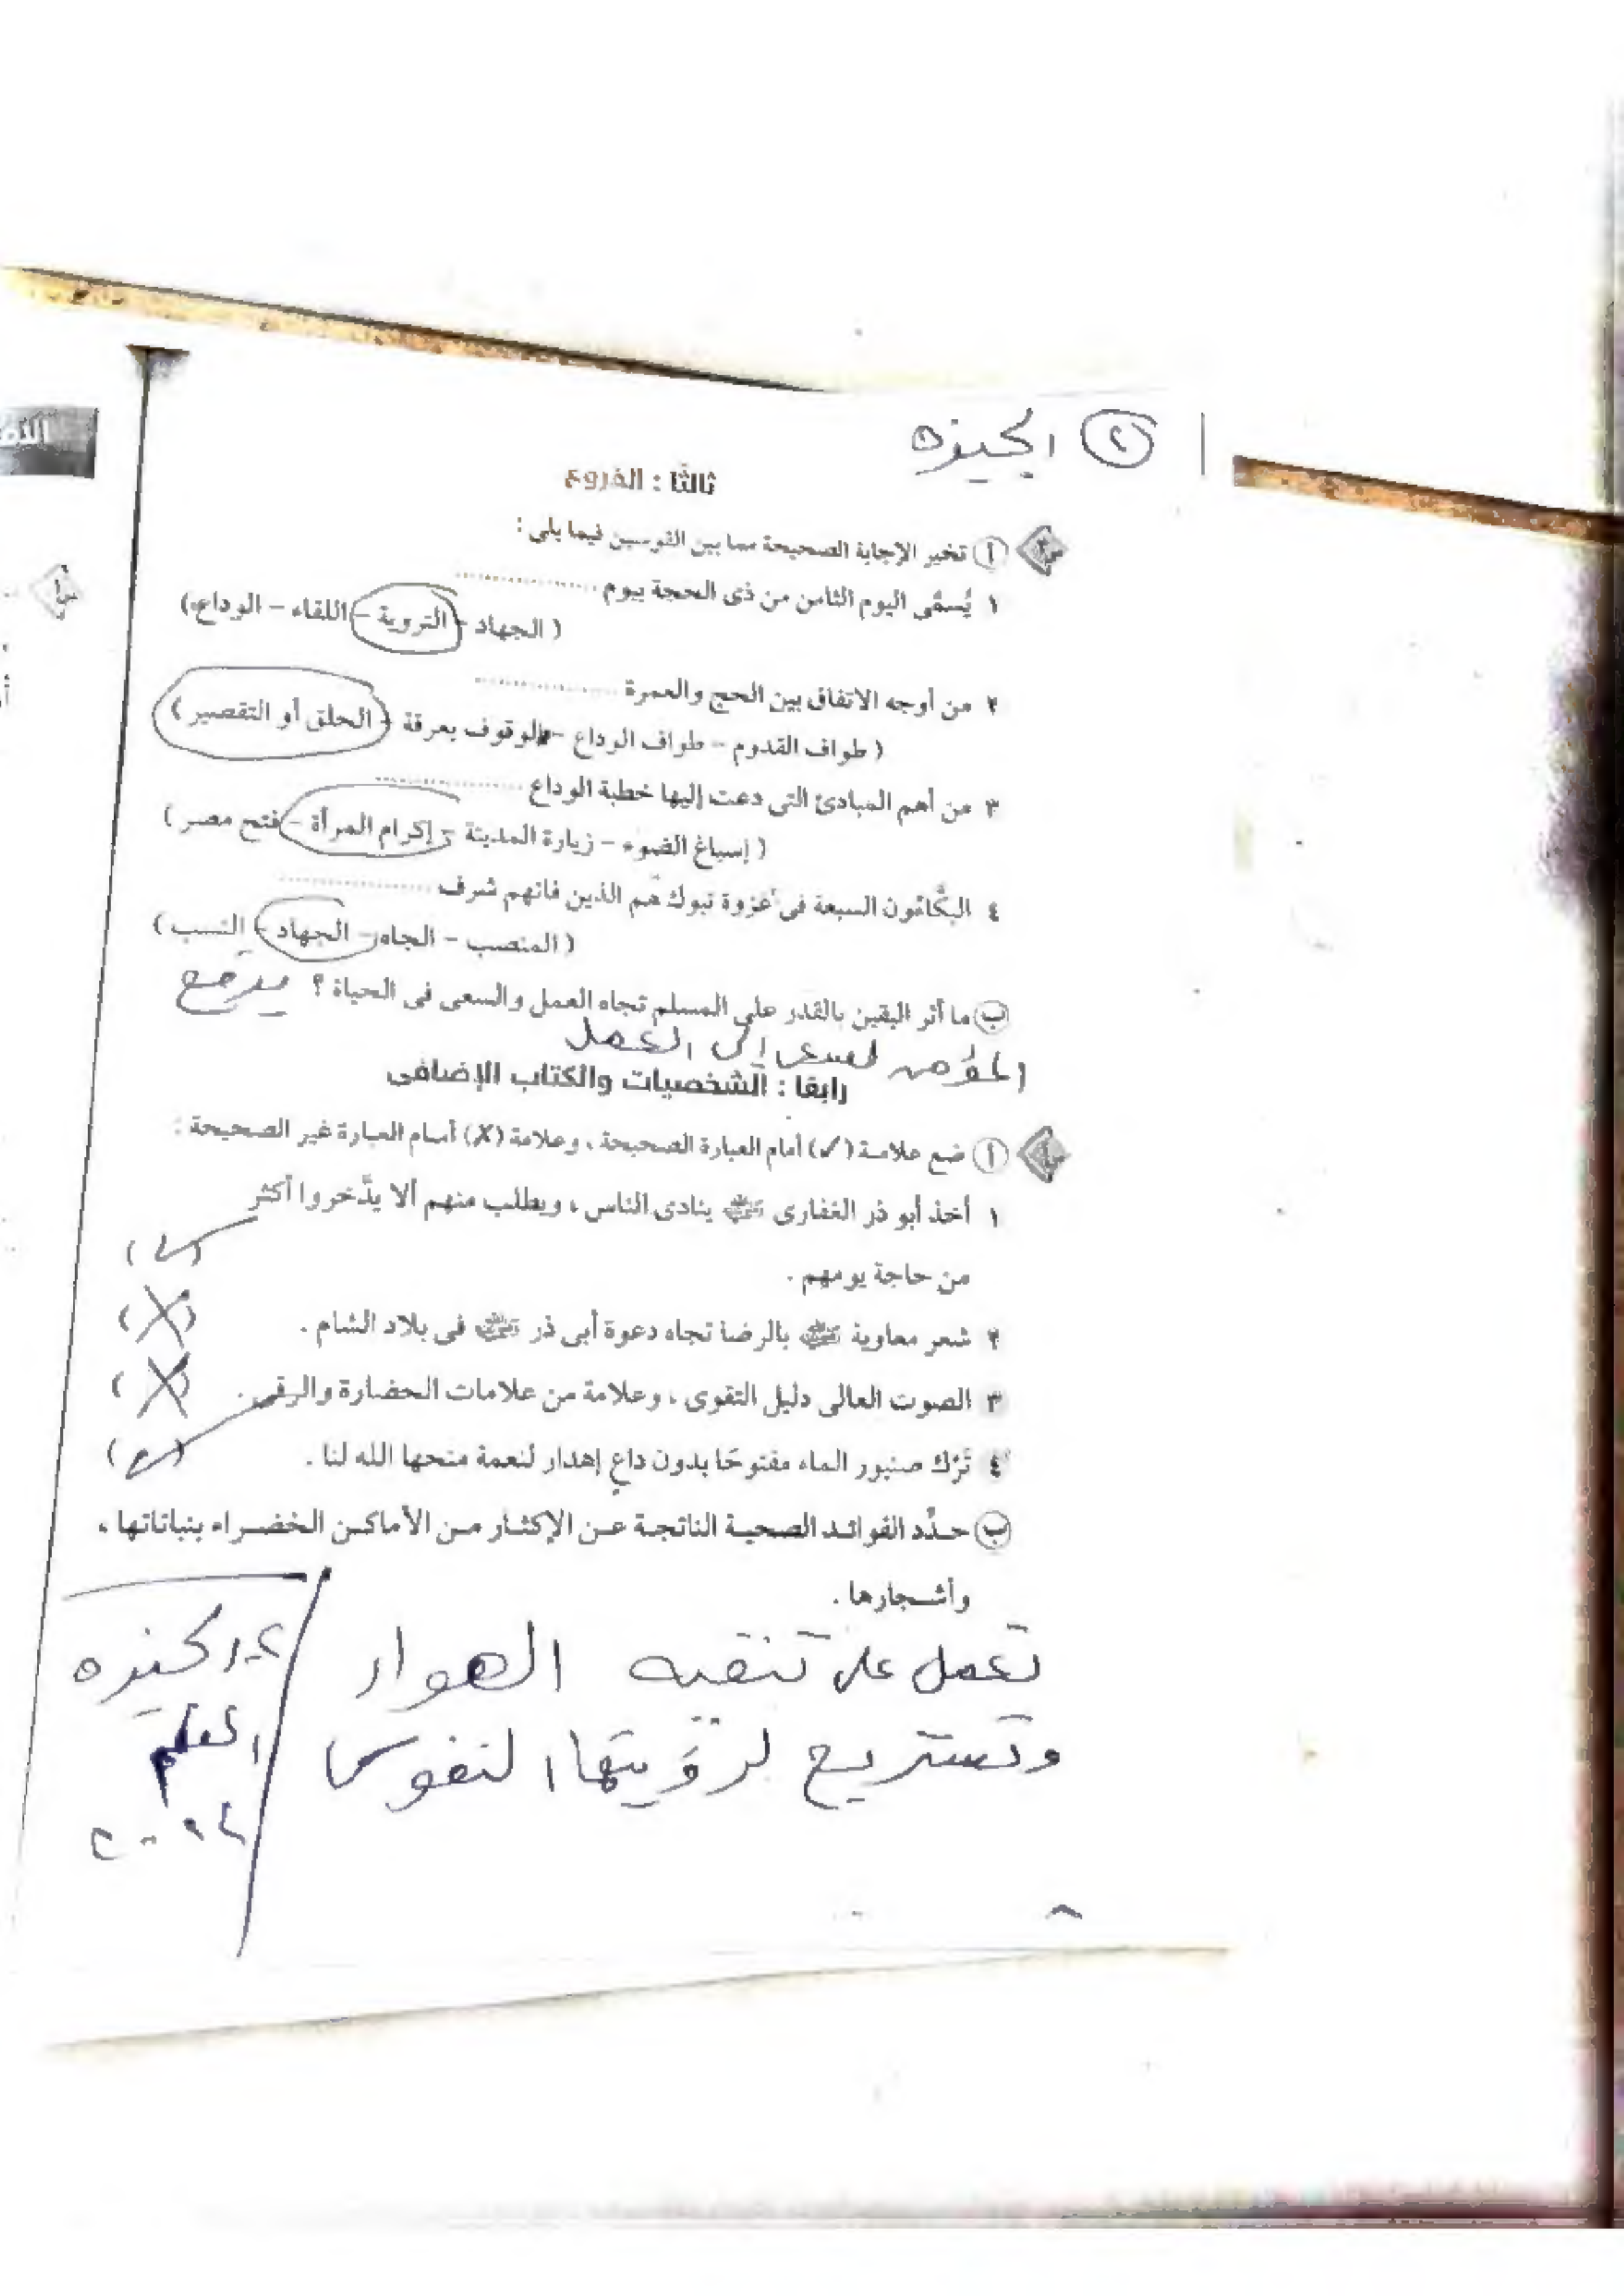 ② الجيزه
ثالثًا : الفروع
س٣ أ تخير الإجابة الصحيحة مما بين القوسين فيما يلى :
١ يُسمَّى اليوم الثامن من ذى الحجة بيوم ..............
( الجهاد – التروية – اللقاء – الوداع )
٢ من أوجه الاتفاق بين الحج والعمرة ..............
( طواف القدوم – طواف الوداع – الوقوف بعرفة – الحلق أو التقصير )
٣ من أهم المبادئ التى دعت إليها خطبة الوداع ..............
( إسباغ الضوء – زيارة المدينة – إكرام المرأة – فتح مصر )
٤ البكَّاءُون السبعة فى غزوة تبوك هم الذين فاتهم شرف ..............
( المنصب – الجاه – الجهاد – النسب )
ب ما أثر اليقين بالقدر على المسلم تجاه العمل والسعى فى الحياة ؟
المؤمن إلى العمل
رابعًا : الشخصيات والكتاب الإضافى
س٤ أ ضع علامة (✓) أمام العبارة الصحيحة ، وعلامة (X) أمام العبارة غير الصحيحة :
١ أخذ أبو ذر الغفارى رضي الله عنه ينادى الناس ، ويطلب منهم ألا يدَّخروا أكثر
من حاجة يومهم . (✓)
٢ شعر معاوية رضي الله عنه بالرضا تجاه دعوة أبى ذر رضي الله عنه فى بلاد الشام . (X)
٣ الصوت العالى دليل التقوى ، وعلامة من علامات الحضارة والرقى . (X)
٤ تَرْك صنبور الماء مفتوحًا بدون داعٍ إهدار لنعمة منحها الله لنا . (✓)
ب حدِّد الفوائد الصحية الناتجة عن الإكثار من الأماكن الخضراء بنباتاتها ،
وأشجارها .
تعمل على تنقيه الهواء
وتستريح لرؤيتها النفوس
الجيزه
المعلم
٨